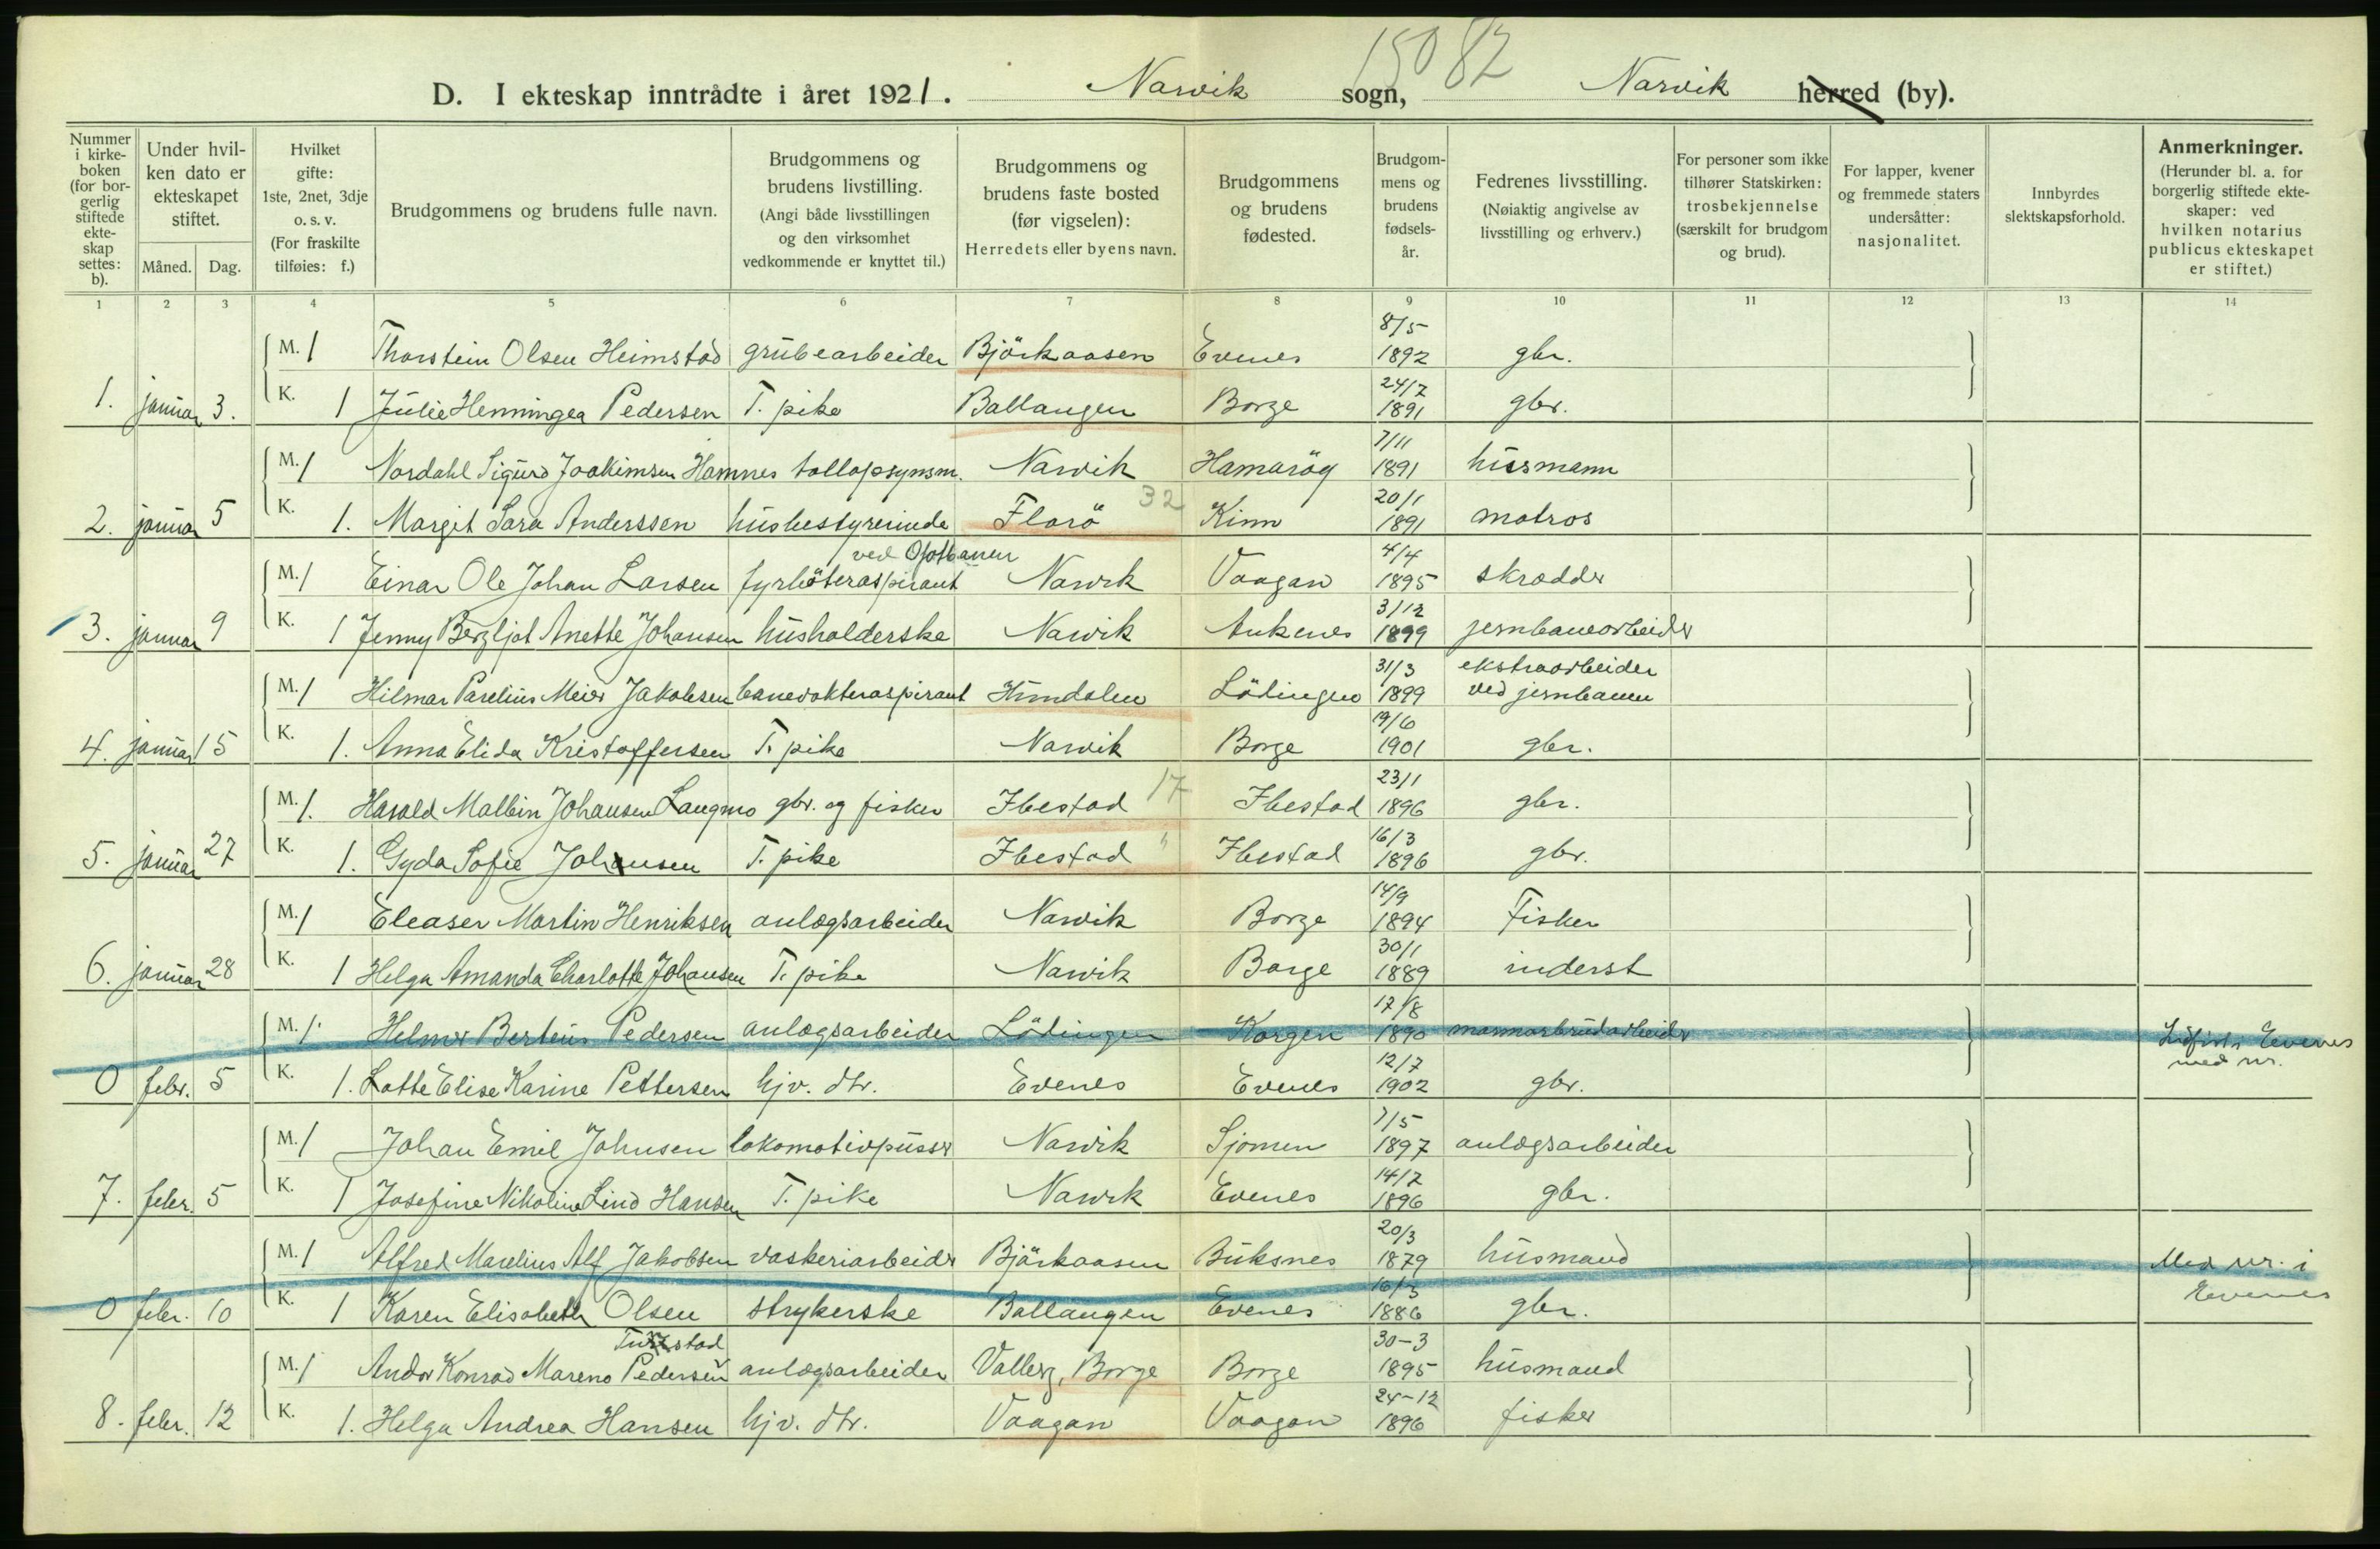 15082
D. I ekteskap inntrådte i året 1921. Narvik sogn, Narvik herred (by).
Nummer i kirkeboken (for borgerlig stiftede ekteskap settes: b).
Under hvilken dato er ekteskapet stiftet.
Måned. Dag.
Hvilket gifte: 1ste, 2net, 3dje o. s. v. (For fraskilte tilføies: f.)
Brudgommens og brudens fulle navn.
Brudgommens og brudens livstilling. (Angi både livsstillingen og den virksomhet vedkommende er knyttet til.)
Brudgommens og brudens faste bosted (før vigselen): Herredets eller byens navn.
Brudgommens og brudens fødested.
Brudgommens og brudens fødselsår.
Fedrenes livsstilling. (Nøiaktig angivelse av livsstilling og erhverv.)
For personer som ikke tilhører Statskirken: trosbekjennelse (særskilt for brudgom og brud).
For lapper, kvener og fremmede staters undersåtter: nasjonalitet.
Innbyrdes slektskapsforhold.
Anmerkninger. (Herunder bl. a. for borgerlig stiftede ekteskaper: ved hvilken notarius publicus ekteskapet er stiftet.)
1 2 3 4 5 6 7 8 9 10 11 12 13 14
M. 1 Thorstein Olsen Heimstad grubearbeider Björkaasen Evenes 8/5 1892 gbr.
1. januar 3. K. 1 Julie Henningea Pedersen T. pike Ballangen Borge 24/7 1891 gbr.
M. 1 Nordahl Sigurd Joakimsen Hamnes tollopsynsm. Narvik Hamaröy 7/11 1891 husmann
2. januar 5 K. 1. Margit Sara Anderssen husbestyrerinde Florö 32 Kinn 20/1 1891 matros
ved Ofotbanen
M. 1 Einar Ole Johan Larsen fyrböteraspirant Narvik Vaagan 4/4 1895 skrædder
3. januar 9 K. 1 Jenny Bergljot Anette Johansen husholderske Narvik Ankenes 3/12 1899 jernbanearbeider
M. 1 Hilmar Parelius Meier Jakobsen banevokteraspirant Hundalen Lödingen 31/3 1899 ekstraarbeider ved jernbanen
4. januar 15 K. 1. Anna Elida Kristoffersen T. pike Narvik Borge 19/6 1901 gbr.
M. 1. Harald Malbin Johansen Langmo gbr. og fisker Ibestad 17 Ibestad 23/1 1896 gbr.
5. januar 27 K. 1. Gyda Sofie Johansen T. pike Ibestad " Ibestad 16/3 1896 gbr.
M. 1 Eleaser Martin Henriksen anlægsarbeider Narvik Borge 14/9 1894 Fisker
6. januar 28 K. 1 Helga Amanda Charlotte Johansen T. pike Narvik Borge 30/1 1889 inderst
M. 1. Helmer Berteus Pedersen anlægsarbeider Lödingen Korgen 17/8 1890 marmorbrudarbeider Evenes med nr.
0 febr. 5 K. 1. Lotte Elise Karine Pettersen hjv. dtr. Evenes Evenes 12/7 1902 gbr.
M. 1 Johan Emil Johnsen lokomotivpusser Narvik Sjomen 7/5 1897 anlægsarbeider
7. febr. 5 K. 1 Josefine Nikoline Lind Hansen T. pike Narvik Evenes 14/7 1896 gbr.
M. 1 Alfred Marelius Alf Jakobsen vaskeriarbeider Björkaasen Buksnes 20/3 1879 husmand Med nr. i Evenes
0 febr. 10 K. 1 Karen Elisabeth Olsen strykerske Ballangen Evenes 16/3 1886 gbr.
M. 1 Andor Konrad Mareno Pedersen anlægsarbeider Valberg, Borge Borge 30-3 1895 husmand
8. febr. 12 K. 1. Helga Andrea Hansen hjv. dtr. Vaagan Vaagan 24-12 1896 fisker